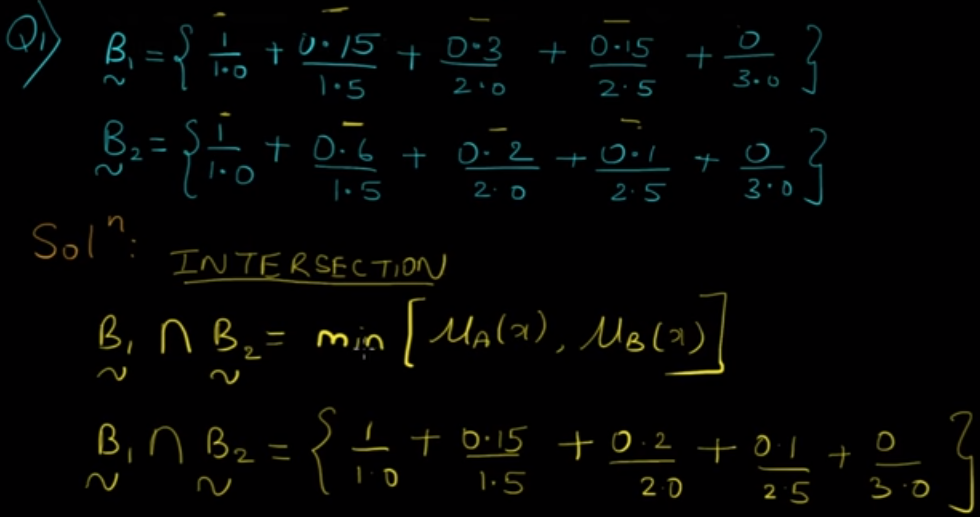 Q1) B̰₁ = { 1/1.0 + 0.15/1.5 + 0.3/2.0 + 0.15/2.5 + 0/3.0 }
B̰₂ = { 1/1.0 + 0.6/1.5 + 0.2/2.0 + 0.1/2.5 + 0/3.0 }
Solⁿ:
INTERSECTION
B̰₁ ∩ B̰₂ = min [ μA(x), μB(x) ]
B̰₁ ∩ B̰₂ = { 1/1.0 + 0.15/1.5 + 0.2/2.0 + 0.1/2.5 + 0/3.0 }